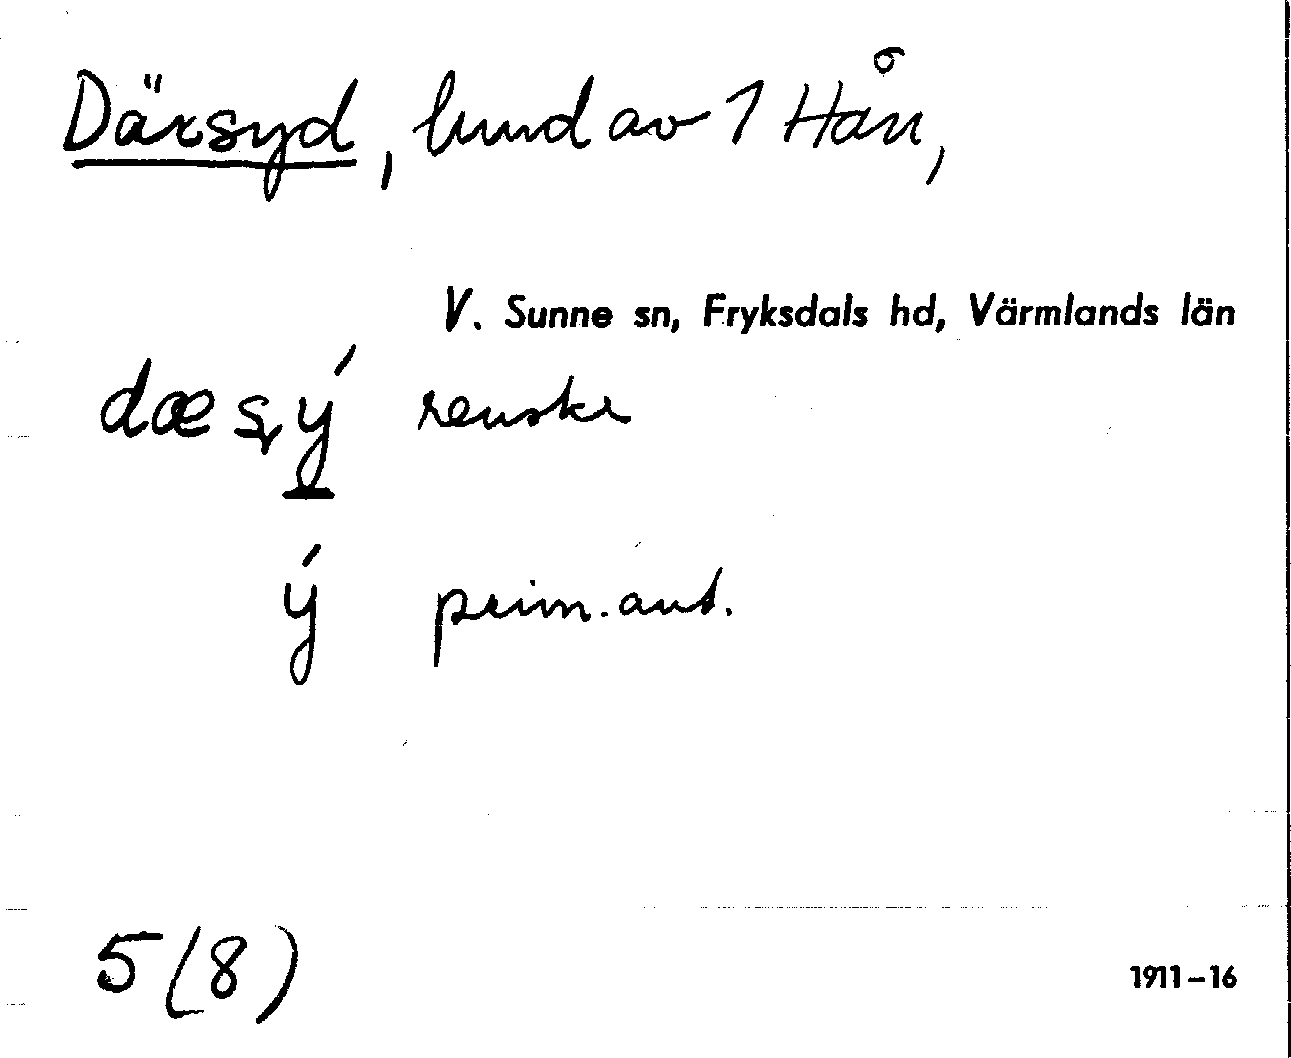 Därsyd, lund av 1 Hån,
V. Sunne sn, Fryksdals hd, Värmlands län
dæ ș ý renskr
ý prim.ant.
5(8)
1911-16